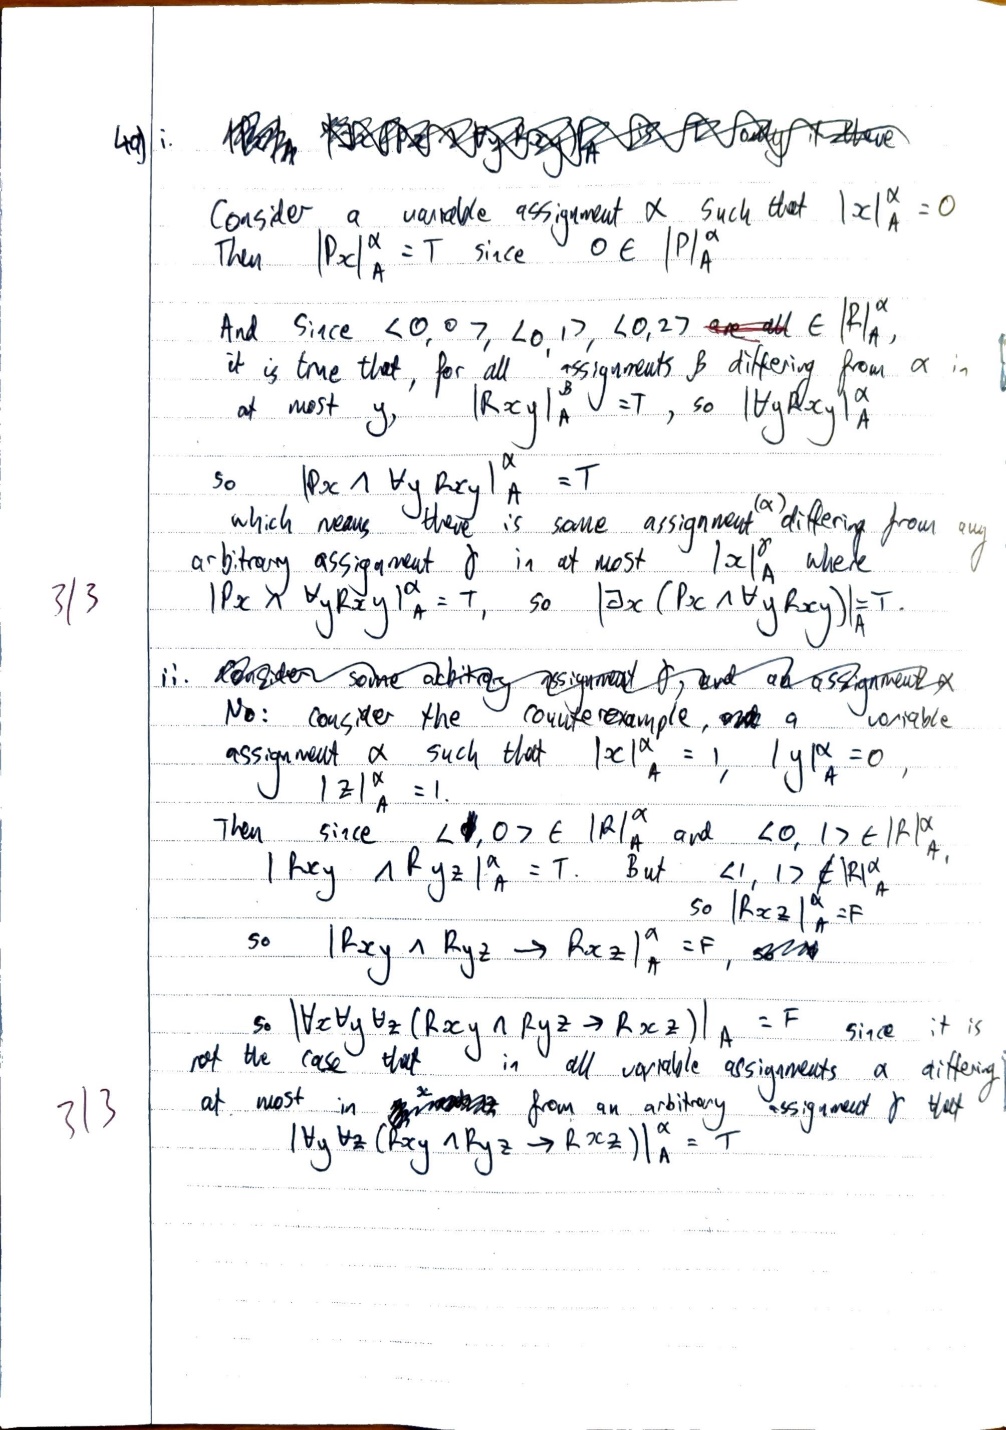 4a) i.
Consider a variable assignment α such that |x|ᵅ_A = 0
Then |Px|ᵅ_A = T since 0 ∈ |P|ᵅ_A
And since <0,0>, <0,1>, <0,2> are all ∈ |R|ᵅ_A,
it is true that, for all assignments β differing from α in
at most y, |Rxy|ᵝ_A = T, so |∀yRxy|ᵅ_A
so |Px ∧ ∀y Rxy|ᵅ_A = T
which means there is some assignment (α) differing from any
arbitrary assignment γ in at most |x|ᵞ_A where
3/3 |Px ∧ ∀yRxy|ᵅ_A = T, so |∃x (Px ∧ ∀y Rxy)|_A = T.
ii. Consider some arbitrary assignment γ, and an assignment α
No: consider the counterexample, a variable
assignment α such that |x|ᵅ_A = 1, |y|ᵅ_A = 0,
|z|ᵅ_A = 1.
Then since <1,0> ∈ |R|ᵅ_A and <0,1> ∈ |R|ᵅ_A,
|Rxy ∧ Ryz|ᵅ_A = T. But <1,1> ∉ |R|ᵅ_A
so |Rxz|ᵅ_A = F
so |Rxy ∧ Ryz → Rxz|ᵅ_A = F,
so |∀x∀y∀z (Rxy ∧ Ryz → Rxz)|_A = F since it is
not the case that in all variable assignments α differing
3/3 at most in x from an arbitrary assignment γ that
|∀y∀z (Rxy ∧ Ryz → Rxz)|ᵅ_A = T